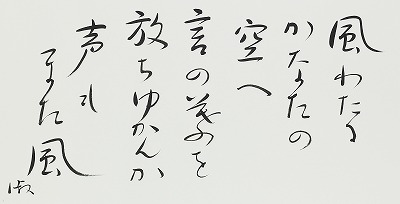 風わたる
かなたの
空へ
言の葉を
放ちゆかんか
声も
また風